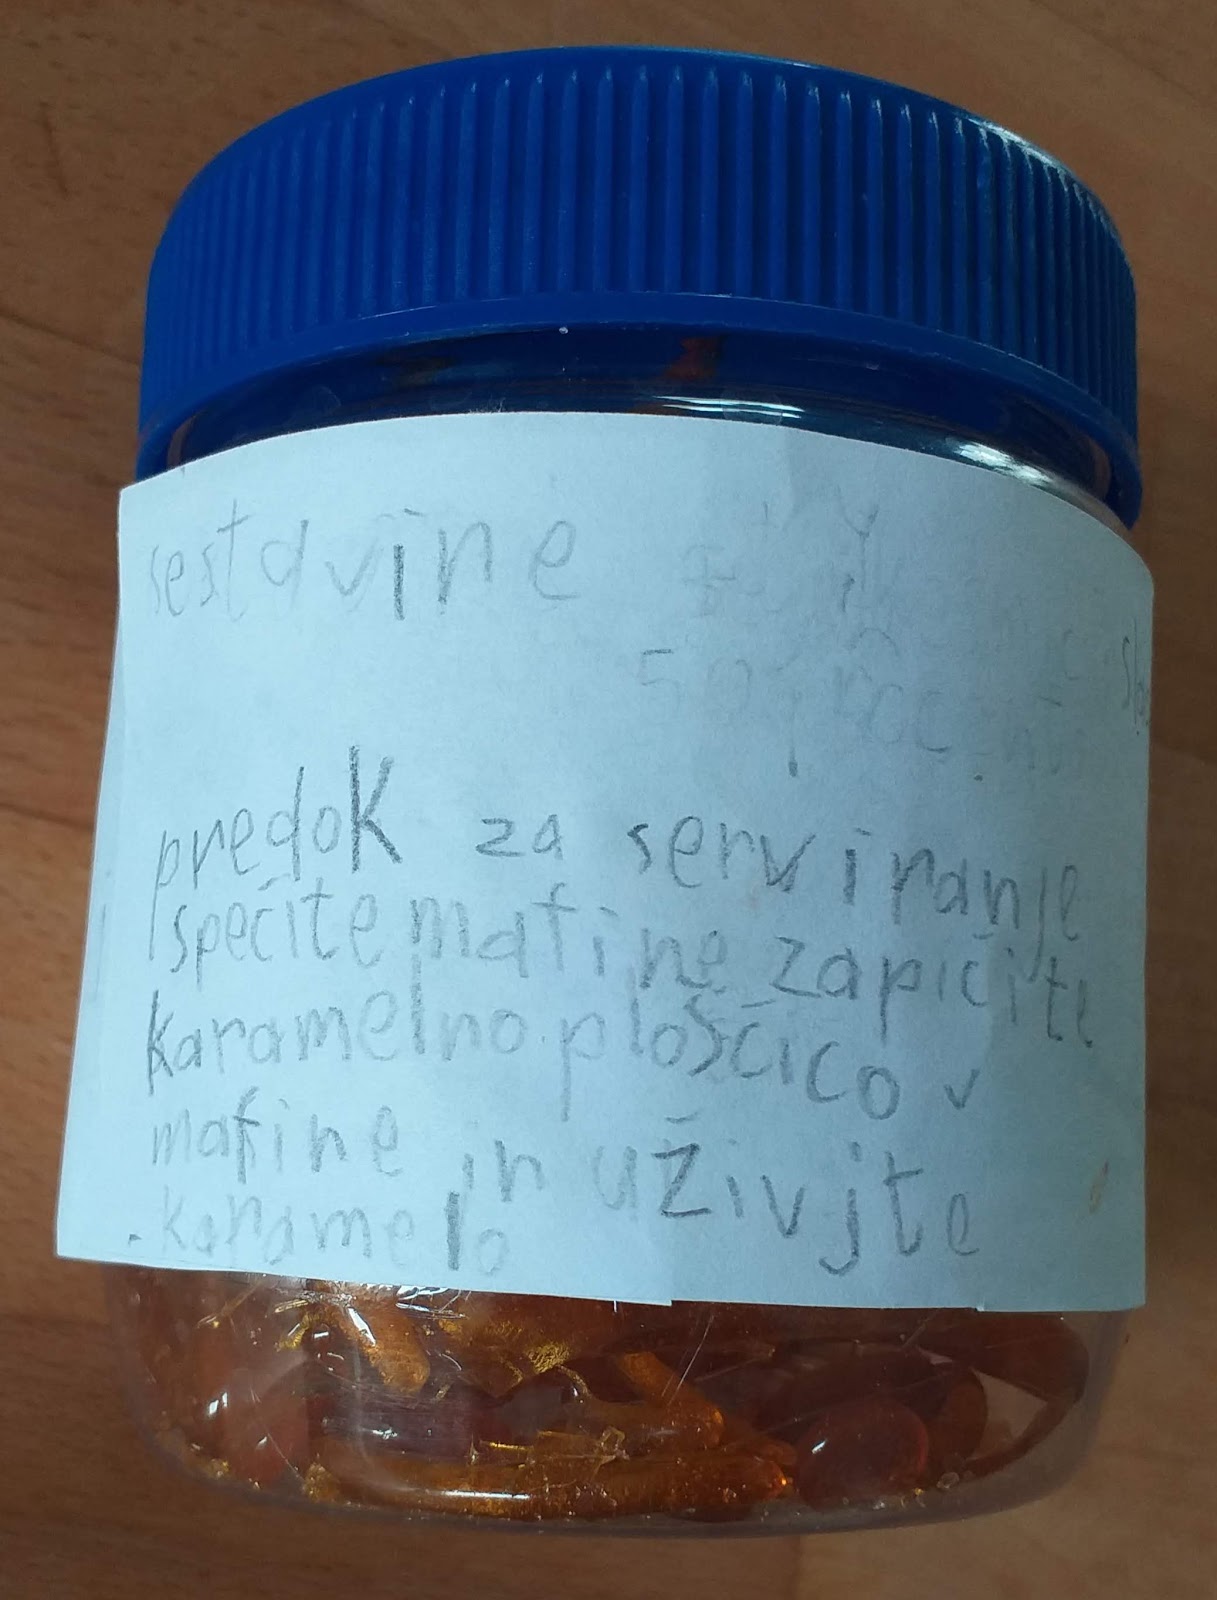 sestavine
predok za serviranje
spečite mafine zapičite
karamelno ploščico v
mafine in uživjte
karamelo